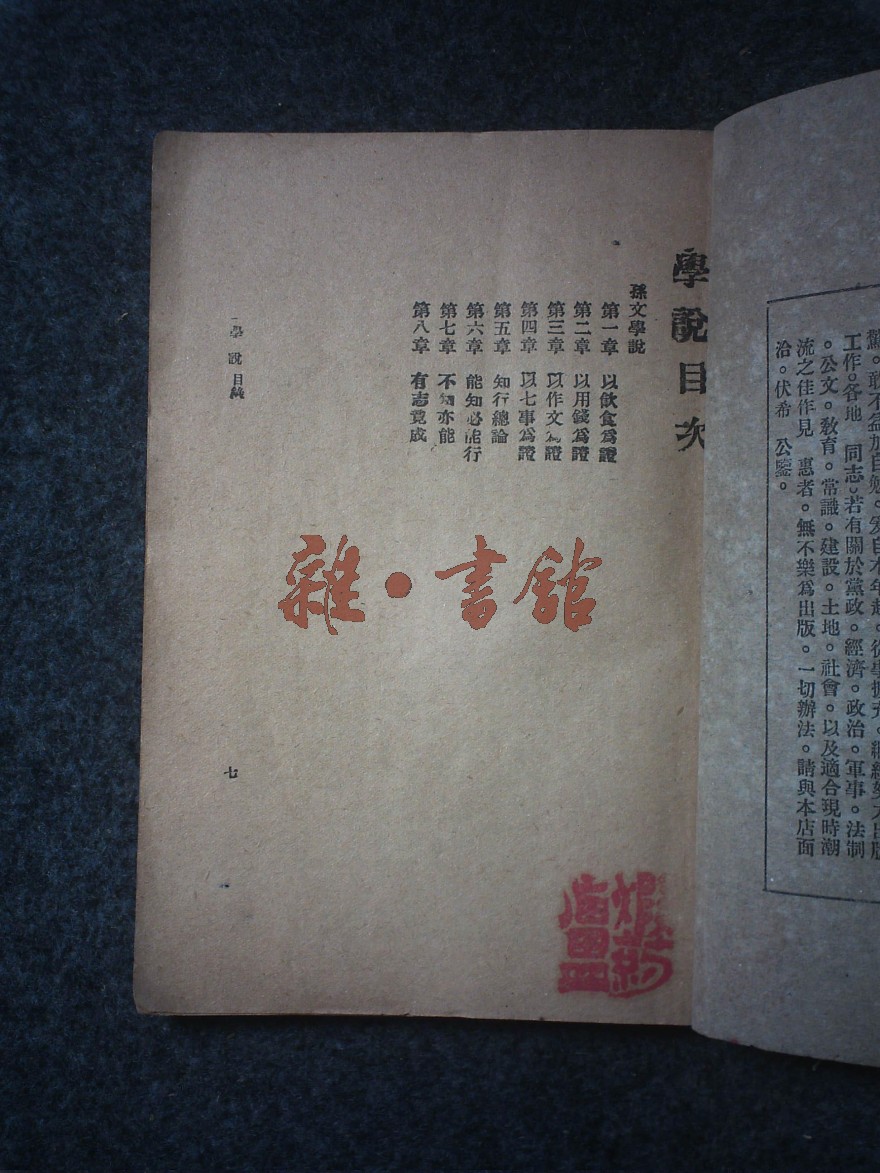 鷔。敢不益加自勉。爰自本年起。從事擴充。繼續努力出版
工作。各地　同志。若有關於黨政。經濟。政治。軍事。法制
。公文。敎育。常識。建設。土地。社會。以及適合現時潮
流之佳作見　惠者。無不樂爲出版。一切辦法。請與本店面
洽。伏希　公鑒。
學說目次
孫文學說
第一章　以飮食爲證
第二章　以用錢爲證
第三章　以作文爲證
第四章　以七事爲證
第五章　知行總論
第六章　能知必能行
第七章　不知亦能
第八章　有志竟成
學說目錄
七
雜·書館